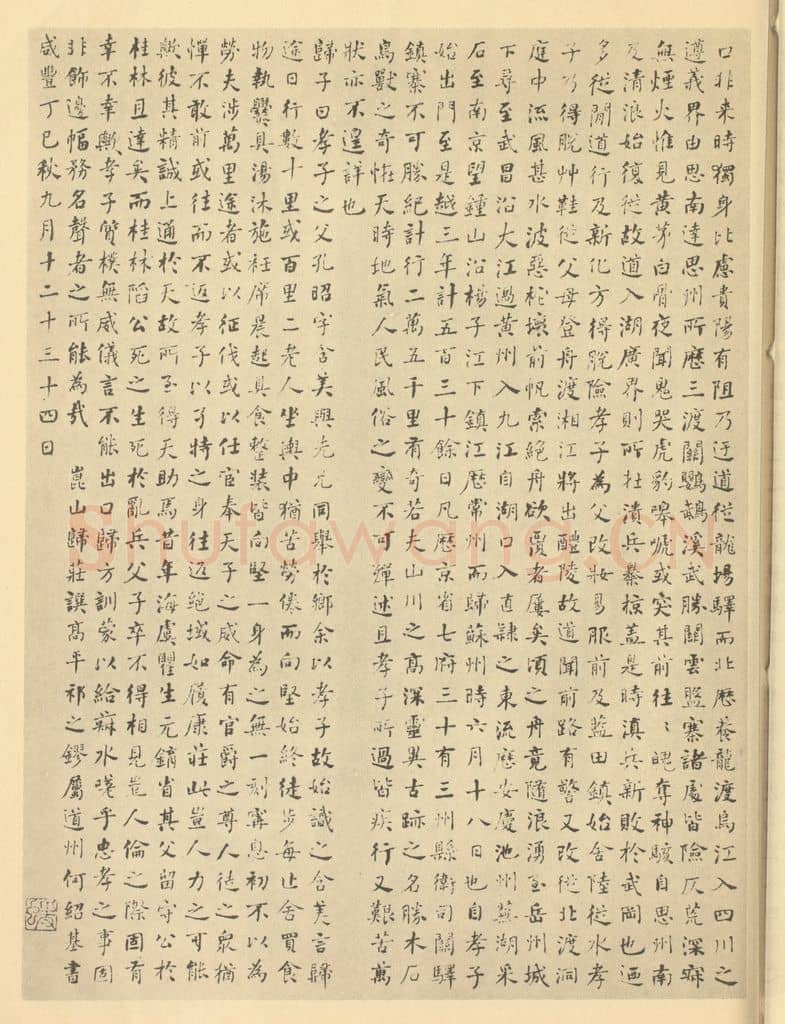 口非来時獨身比慮貴陽有阻乃迂道從龍場驛而北歷養龍渡烏江入四川之
遵義界由思南達思州所歷三渡關鸚鵡溪武勝關雲盤寨諸處皆險仄荒深寂
無煙火惟見黃茅白骨夜聞鬼哭虎豹嗥唬或突其前往〻魄奪神駭自思州南
及清浪始復從故道入湖廣界則所在潰兵暴掠蓋是時滇兵新敗於武岡也迺
多從閒道行及新化方得脫險孝子為父改妝易服前及藍田鎮始舍陸從水孝
子乃得脫艸鞋從父母登舟渡湘江將出醴陵故道聞前路有警又改從北渡洞
庭中流風甚水波惡柁壞前帆索絕舟欲覆者屢矣頃之舟竟隨浪湧至岳州城
下尋至武昌沿大江過黃州入九江自湖口入直隸之東流歷安慶池州蕪湖采
石至南京望鍾山沿楊子江下鎮江歷常州而歸蘇州時六月十八日也自孝子
始出門至是越三年計五百三十餘日凡歷京省七府三十有三州縣衛司關驛
鎮寨不可勝紀計行二萬五千里有奇若夫山川之高深靈異古跡之名勝木石
鳥獸之奇恠天時地氣人民風俗之變不可殫述且孝子所過皆疾行又艱苦萬
狀亦不遑詳也
歸子曰孝子之父孔昭字含美與先兄同舉於鄉余以孝子故始識之含美言歸
途日行數十里或百里二老人坐輿中猶苦勞倦而向堅始終徒步每止舍買食
物執爨具湯沐施衽席晨起具食整裝皆向堅一身為之無一刻甯息初不以為
勞夫涉萬里途者或以征伐或以仕宦奉天子之威命有官爵之尊人徒之衆猶
憚不敢前或往而不返孝子以孑特之身往返絕域如履康莊此豈人力之可能
歟彼其精誠上通於天故所至得天助焉昔年海虞瞿生元錥省其父留守公於
桂林且達矣而桂林陷公死之生死於亂兵父子卒不得相見豈人倫之際固有
幸不幸歟孝子質樸無威儀言不能出口歸方訓蒙以給蔴水嗟乎忠孝之事固
非飾邊幅務名聲者之所能為哉 崑山歸莊譔高平祁之鏐屬道州何紹基書
咸豐丁巳秋九月十二十三十四日